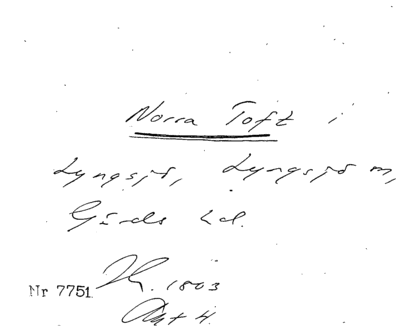 Norra Toft i
Lyngsjö, Lyngsjö m,
Gärds hd.
Nr 7751
1803
Akt 4.